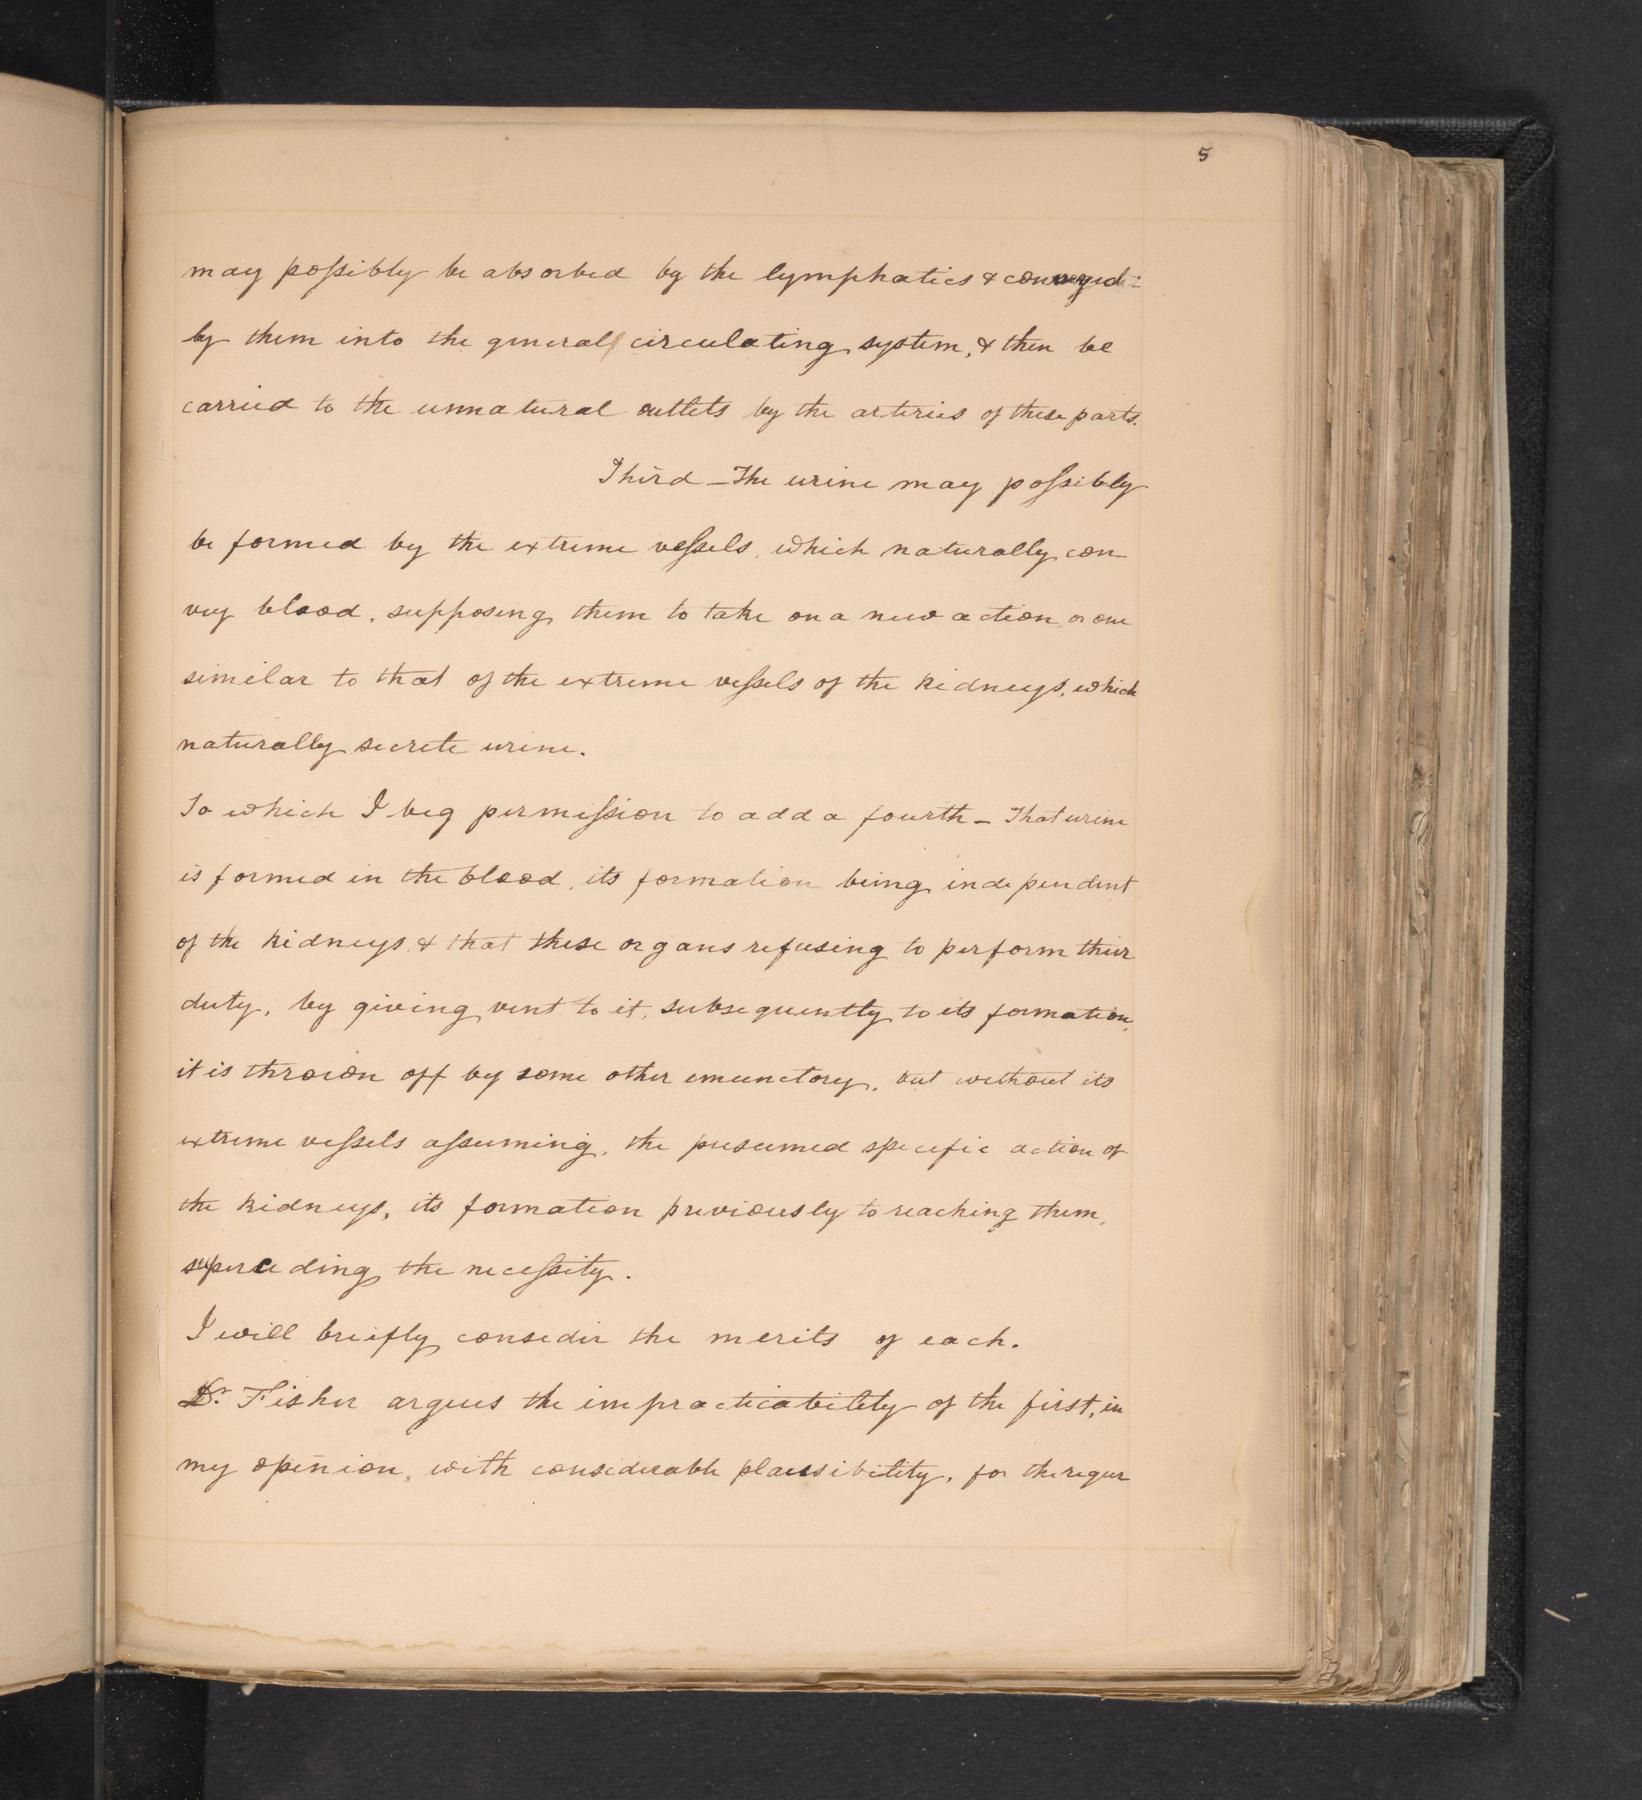 5
may possibly be absorbed by the lymphatics & conveyed
by them into the general circulating system, & then be
carried to the unnatural outlets by the arteries of these parts.
Third — The urine may possibly
be formed by the extreme vessels, which naturally con-
vey blood, supposing them to take on a new action, or one
similar to that of the extreme vessels of the kidneys, which
naturally secrete urine.
To which I beg permission to add a fourth — That urine
is formed in the blood, its formation being independent
of the kidneys, & that these organs refusing to perform their
duty, by giving vent to it, subsequently to its formation,
it is thrown off by some other emunctory, but without its
extreme vessels assuming, the presumed specific action of
the kidneys, its formation previously to reaching them,
superceding the necessity.
I will briefly consider the merits of each.
Dr. Fisher argues the impracticability of the first, in
my opinion, with considerable plausibility, for the regur